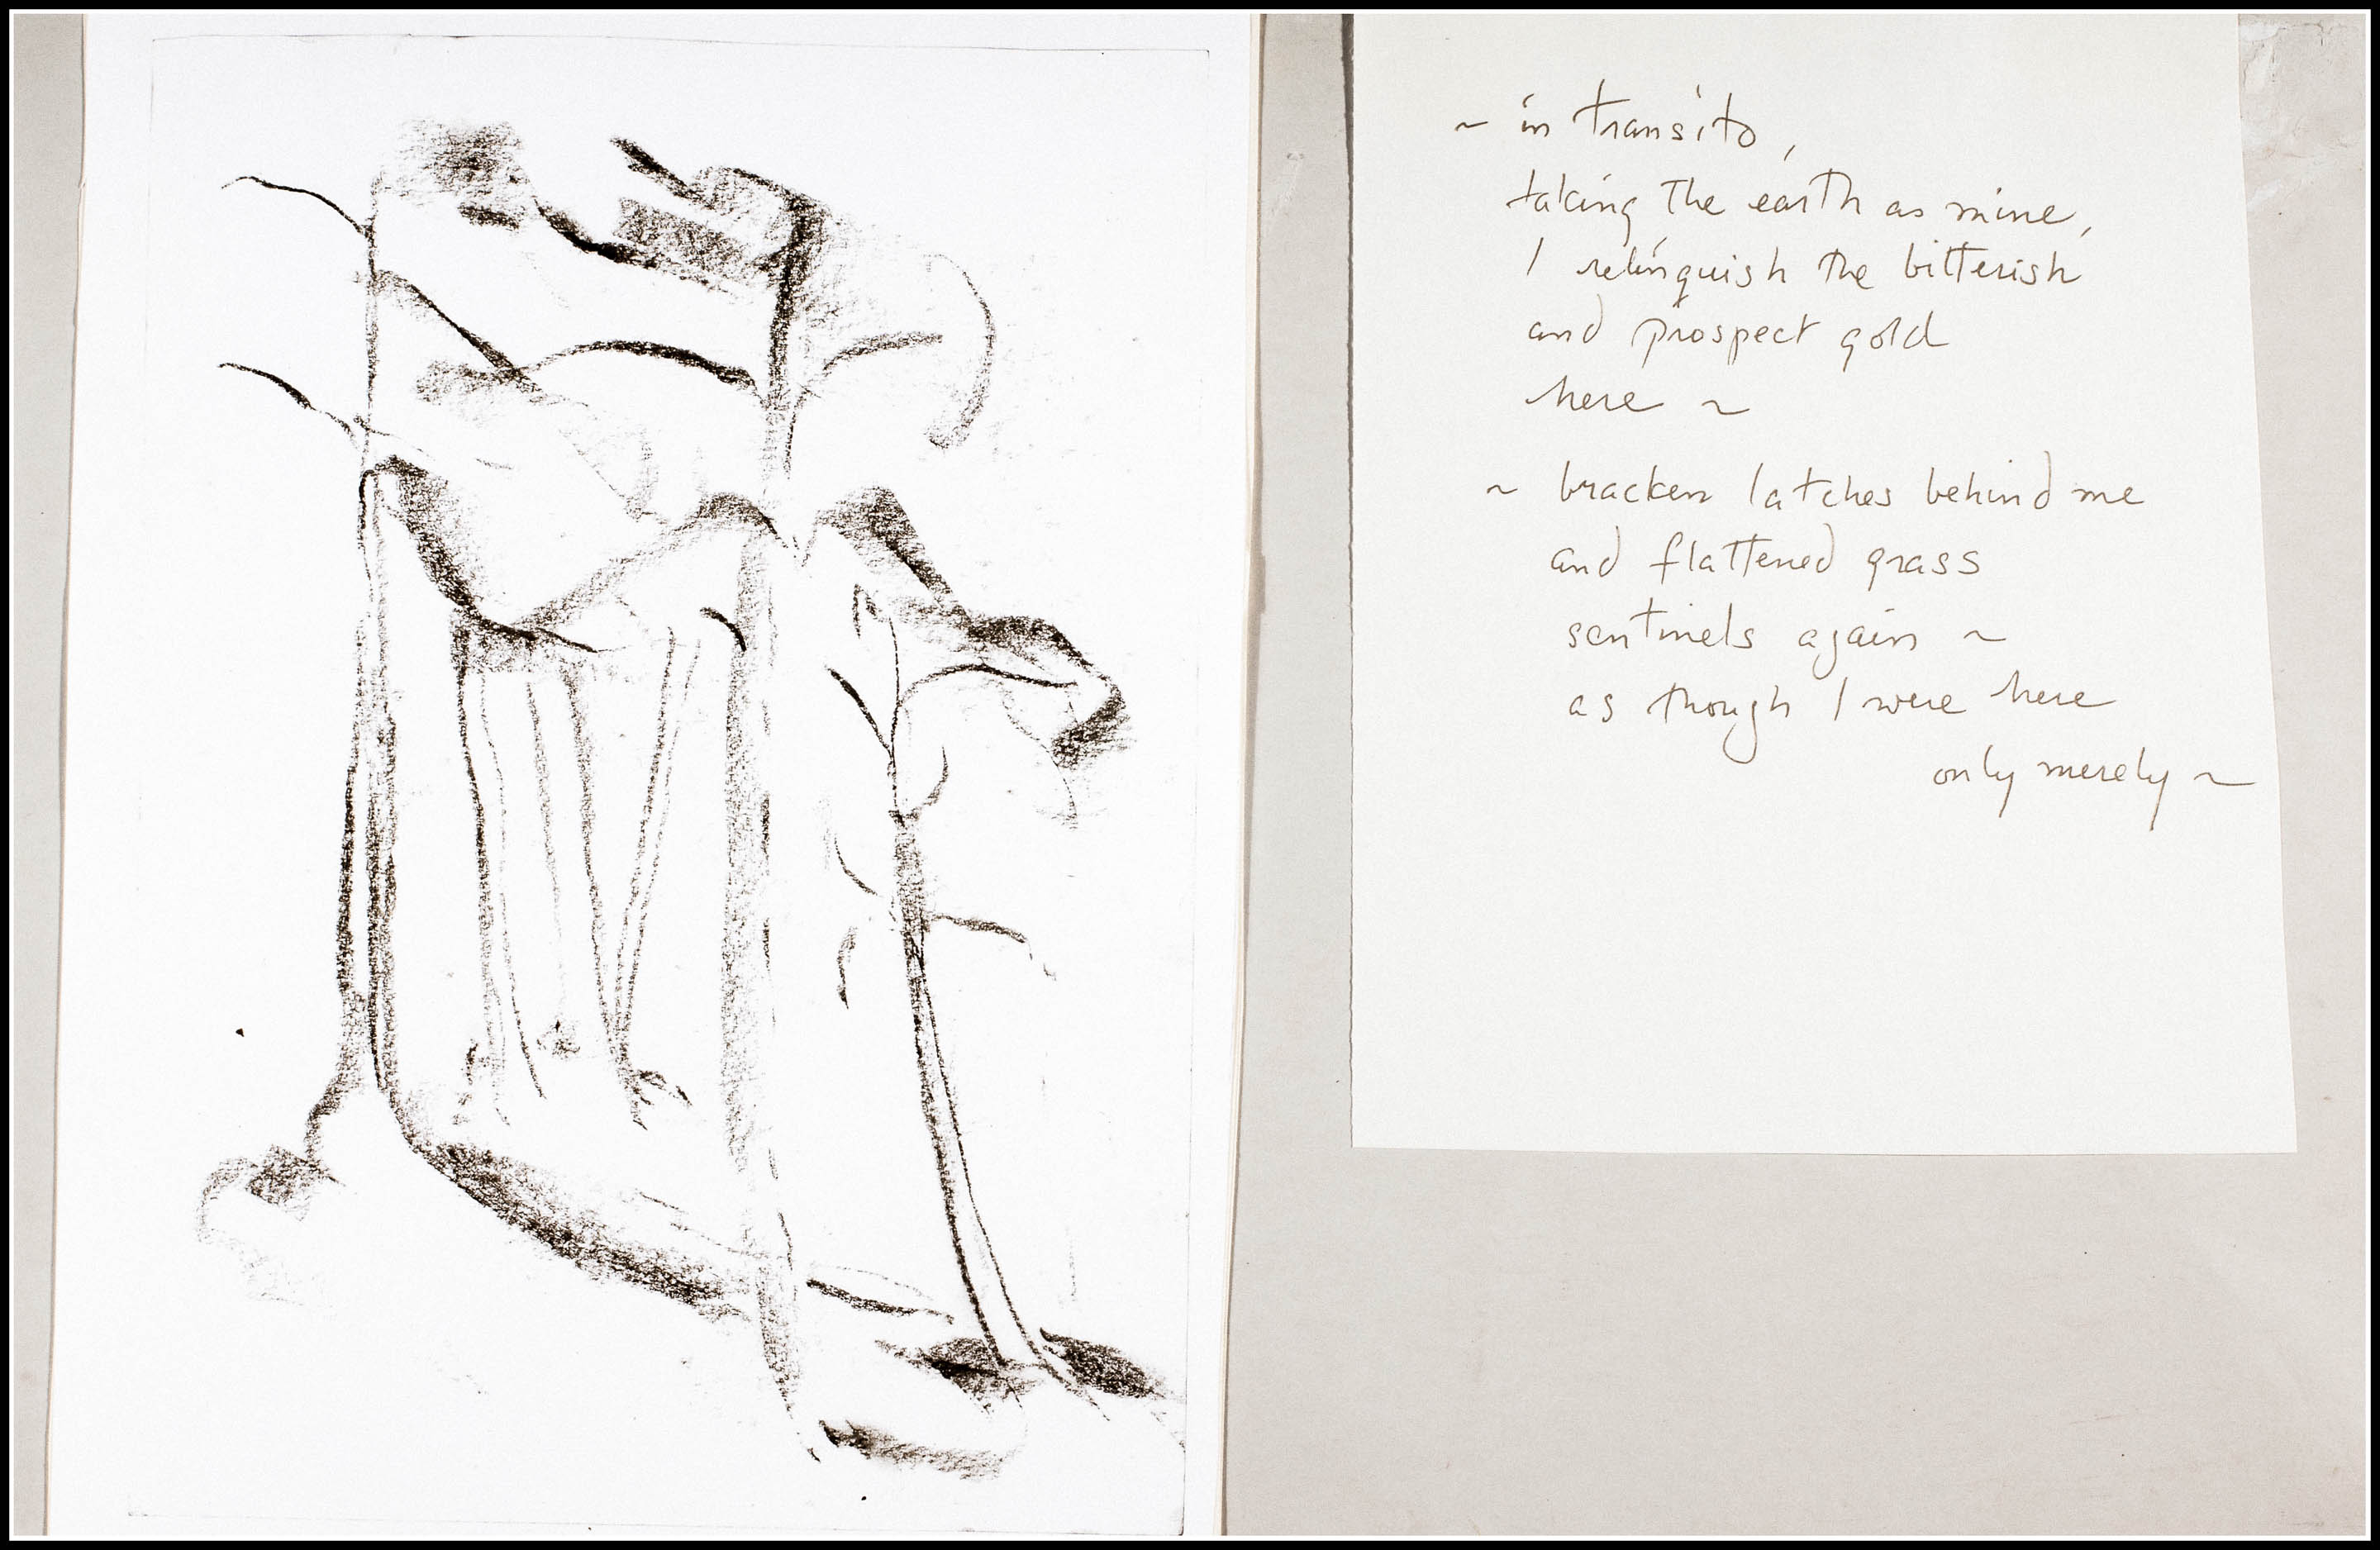 ~ in transito,
taking the earth as mine,
I relinquish the bitterish
and prospect gold
here ~
~ bracken latches behind me
and flattened grass
sentinels again ~
as though I were here
only merely ~